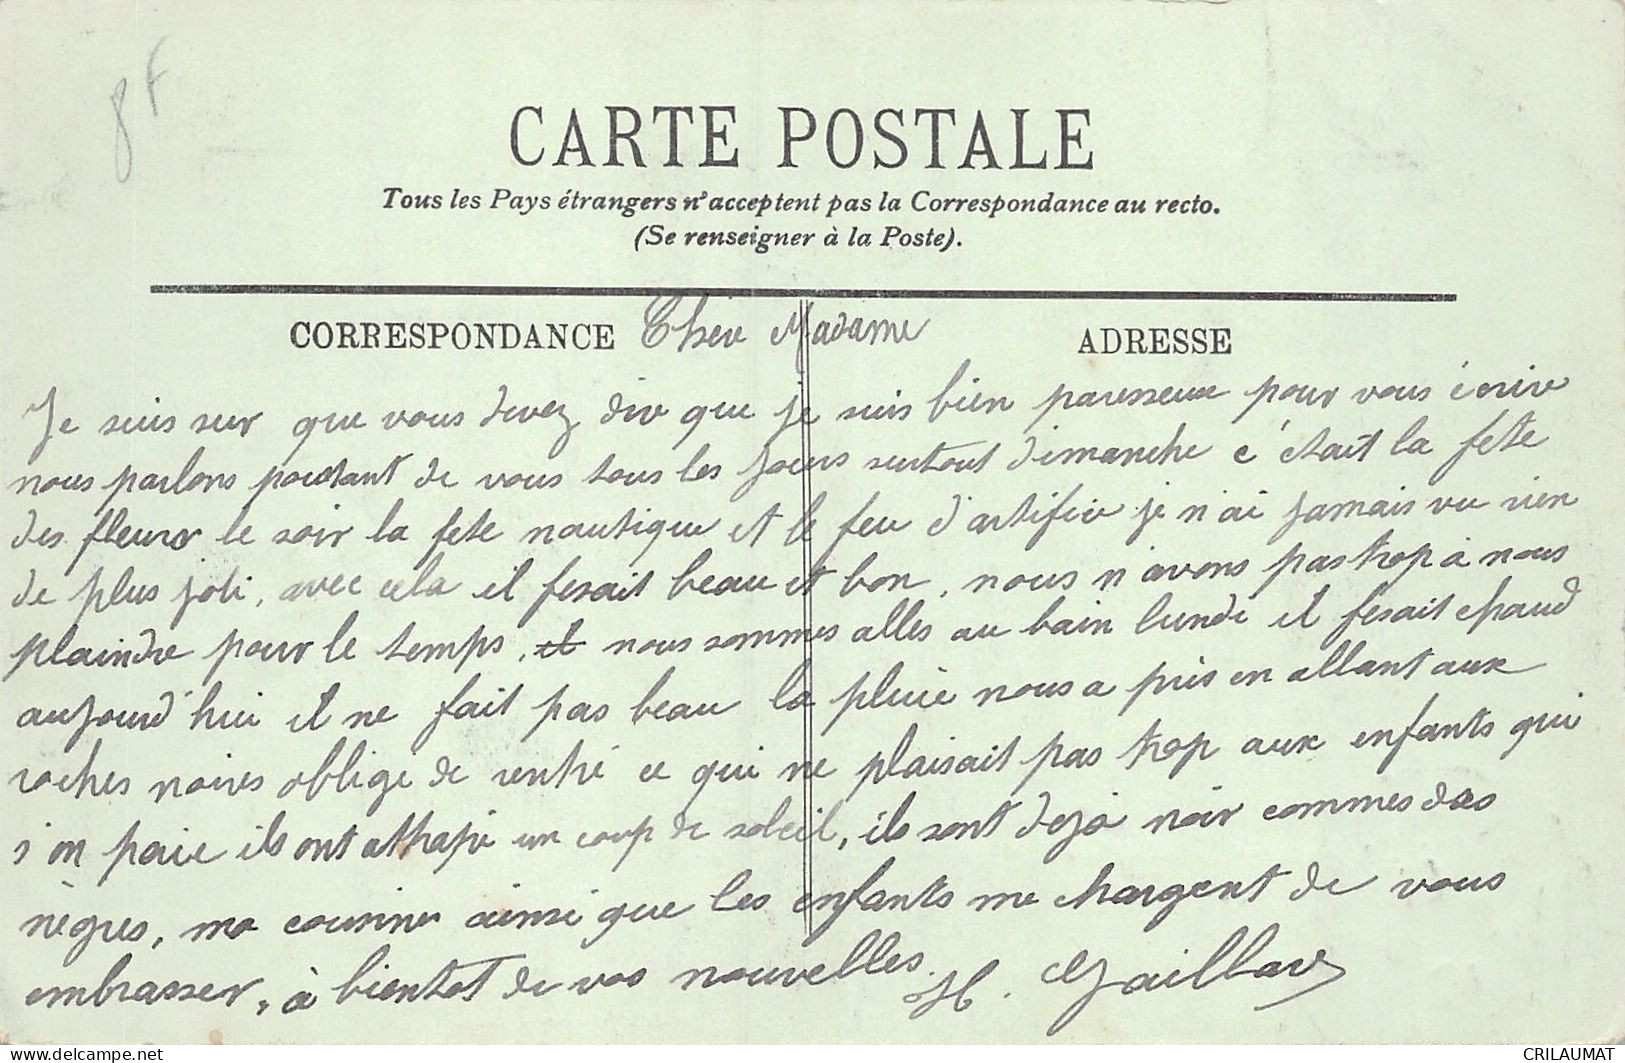 8F
CARTE POSTALE
Tous les Pays étrangers n'acceptent pas la Correspondance au recto.
(Se renseigner à la Poste).
CORRESPONDANCE Cher Madame ADRESSE
Je suis sur que vous devez dire que je suis bien paresseux pour vous écrire
nous parlons pourtant de vous tous les jours surtout dimanche c'était la fete
des fleurs le soir la fete nautique et le feu d'artifice je n'ai jamais vu rien
de plus joli, avec cela il fesait beau et bon, nous n'avons pas trop à nous
plaindre pour le temps, il nous sommes alles au bain lundi il fesait chaud
aujourd'hui il ne fait pas beau la pluie nous a pris en allant aux
roches noires oblige de rentré ce qui ne plaisait pas trop aux enfants qui
s'on paie ils ont attrapé un coup de soleil, ils sont deja noir commes das
nègres, ma cousine ainsi que les enfants me chargent de vous
embrasser, à bientot de vos nouvelles. H. Gaillard
delcampe.net
CRILAUMAT